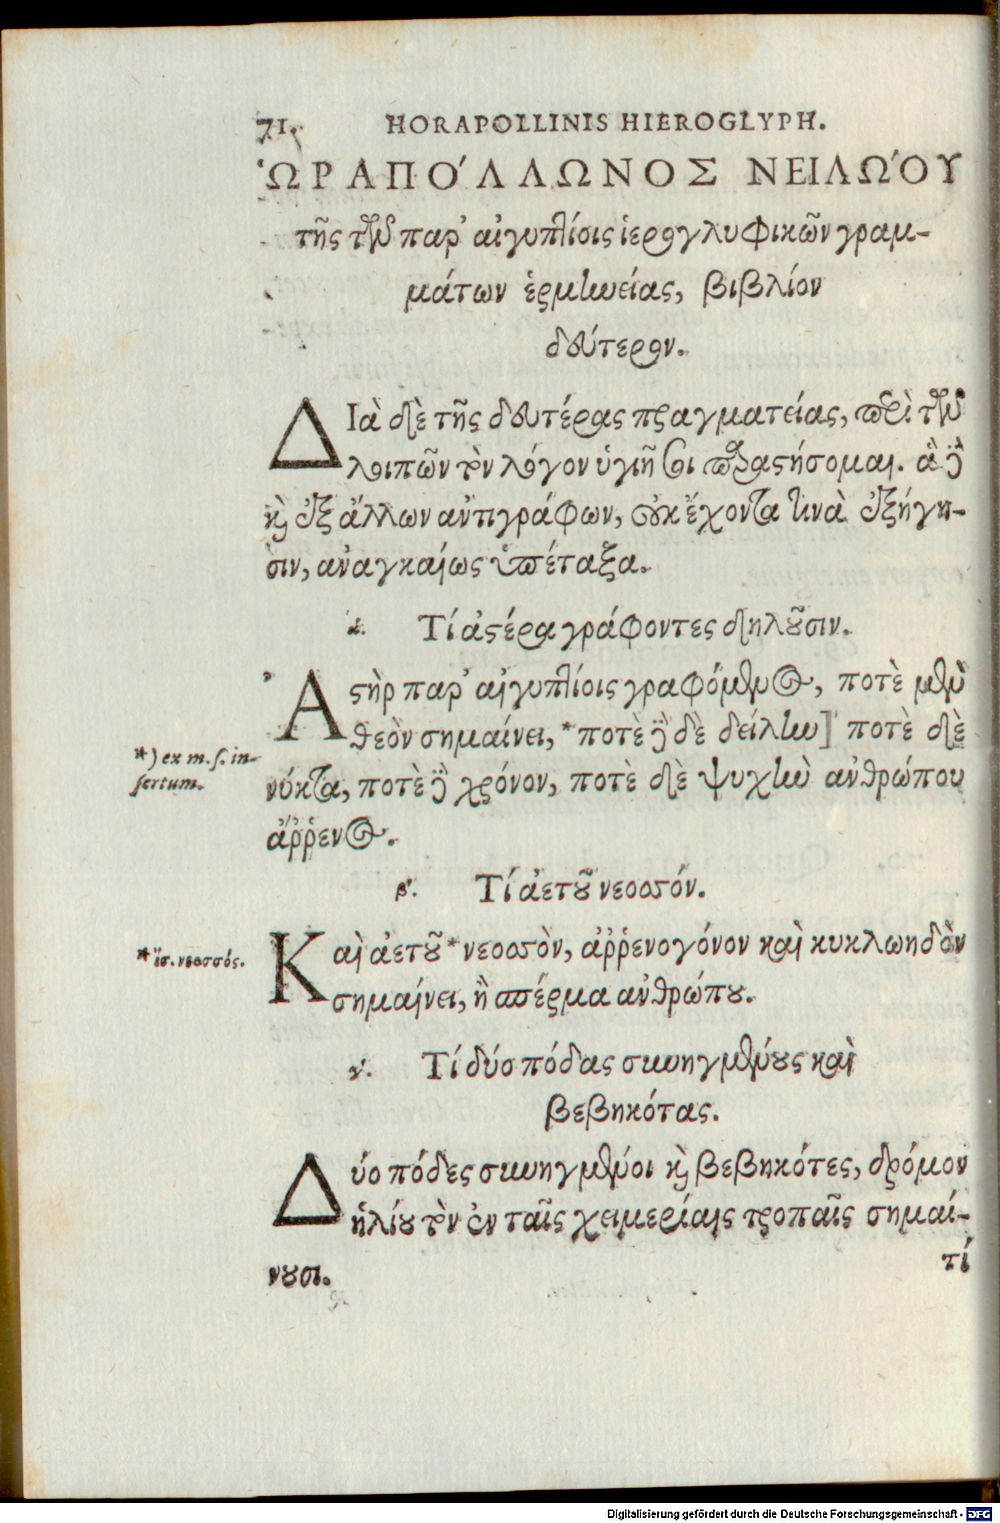 71. HORAPOLLINIS HIEROGLYPH.
ὩΡΑΠΌΛΛΩΝΟΣ ΝΕΙΛΏΟΥ
τῆς τῶν παρ' αἰγυπτίοις ἱερογλυφικῶν γραμ-
μάτων ἑρμηνείας, βιβλίον
δεύτερον.
ΔΙὰ δὲ τῆς δευτέρας πραγματείας, περὶ τῶν
λοιπῶν τὸν λόγον ὑγιῆ σοι παραστήσομαι. ἃ δὲ
καὶ ἐξ ἄλλων ἀντιγράφων, οὐκ ἔχοντα τινὰ ἐξήγη-
σιν, ἀναγκαίως ὑπέταξα.
α'. Τί ἀστέρα γράφοντες δηλοῦσιν.
Ἀστὴρ παρ' αἰγυπτίοις γραφόμενος, ποτὲ μὲν
θεὸν σημαίνει, *ποτὲ δὲ δὲ δείλην] ποτὲ δὲ
*) ex m.s. in-
sertum.
νύκτα, ποτὲ δὲ χρόνον, ποτὲ δὲ ψυχὴν ἀνθρώπου
ἄῤῥενος.
β'. Τί ἀετοῦ νεοσσόν.
Καὶ ἀετοῦ *νεοσσὸν, ἀῤῥενογόνον καὶ κυκλωηδὸν
* ἴσ. νεοσσός.
σημαίνει, ἢ σπέρμα ἀνθρώπου.
γ'. Τί δύο πόδας συνηγμένους καὶ
βεβηκότας.
Δύο πόδες συνηγμένοι καὶ βεβηκότες, δρόμον
ἡλίου τὸν ἐν ταῖς χειμερίαις τροπαῖς σημαί-
νουσι.
τί
Digitalisierung gefördert durch die Deutsche Forschungsgemeinschaft - DFG